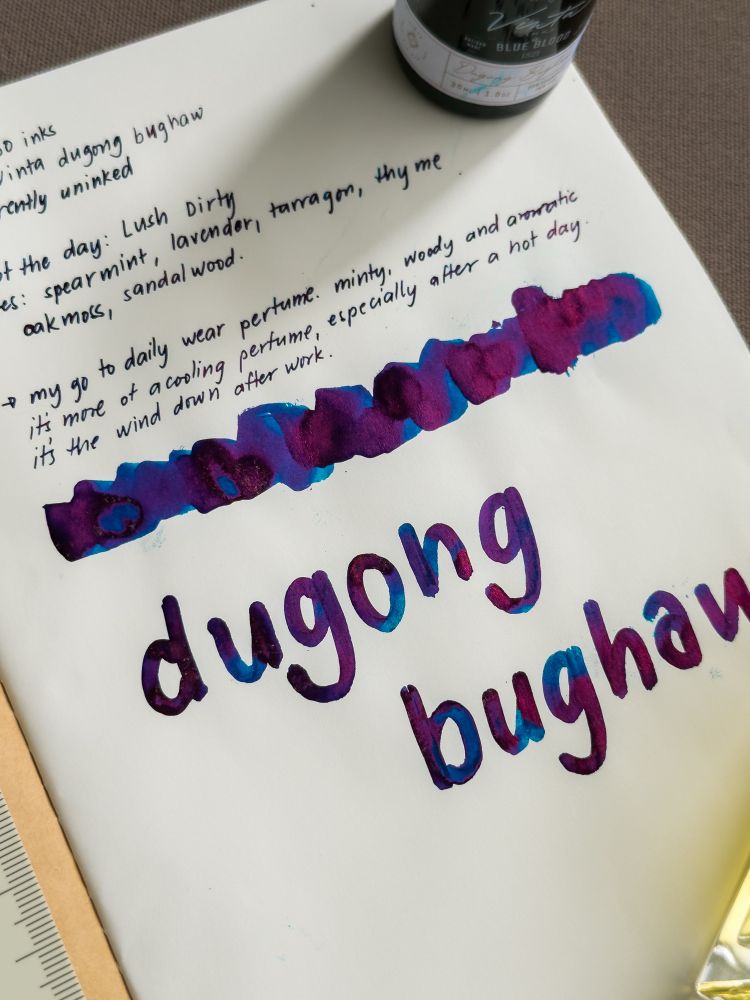 Vinta
BLUE BLOOD
1521
inks
vinta dugong bughaw
uninked
the day: Lush Dirty
spearmint, lavender, tarragon, thyme
oakmoss, sandalwood.
→ my go to daily wear perfume. minty, woody and aromatic
it's more of a cooling perfume, especially after a hot day.
it's the wind down after work.
dugong
bughaw